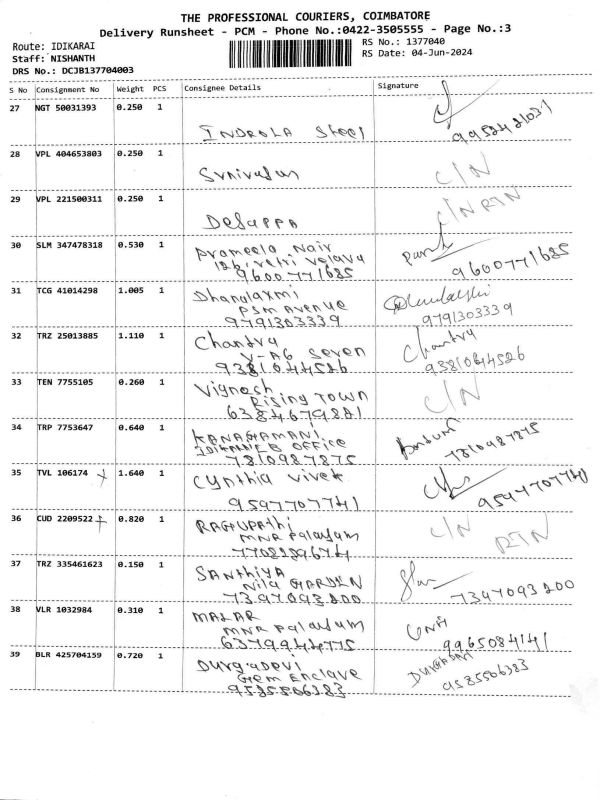 THE PROFESSIONAL COURIERS, COIMBATORE
Delivery Runsheet - PCM - Phone No.:0422-3505555 - Page No.:3
Route: IDIKARAI
RS No.: 1377040
Staff: NISHANTH
RS Date: 04-Jun-2024
DRS No.: DCJB137704003
S No Consignment No Weight PCS Consignee Details Signature
27 NGT 50031393 0.250 1
INDROLA Steel
28 VPL 404653803 0.250 1 C/N
Srnivasan
29 VPL 221500311 0.250 1 C/N RTN
DeSAPPA
30 SLM 347478318 0.530 1 Prameela Nair
Vetri Velava
9600771685 9600771685
31 TCG 41014298 1.005 1 Dhanalaxmi
PSM Avenue
9791303339 9791303339
32 TRZ 25013885 1.110 1 Chandra Chandra
V-A6 Seven
9381044526
33 TEN 7755105 0.260 1 Vignesh C/N
Rising TOWN
34 TRP 7753647 0.640 1 KANAGAMANI
OFFICE
7810987875 7810987875
35 TVL 106174 1.640 1 Cynthia Vivek
9597707741 9597707741
36 CUD 2209522 0.820 1 RAGUPATHI C/N RTN
MNR Palayam
37 TRZ 335461623 0.150 1 SANTHIYA
Nila GARDEN
7397093200 7397093200
38 VLR 1032984 0.310 1 MALAR
MNR Palayam
6379944775 9965084141
39 BLR 425704159 0.720 1 Durgadevi DURGADEVI
Gem Enclave
9585506383 9585506383